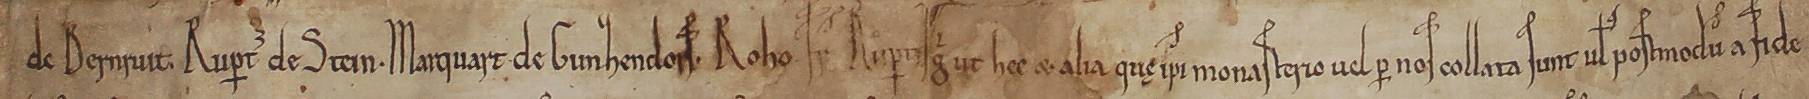 de Bernrut. Rupt de Stein. Marquart de Gunzhendorf. Roho Fr Rupti Igͥ ut hec & alia quę ipͥi monasterio uel ꝑ nos collata sunt ul postmodū a fide